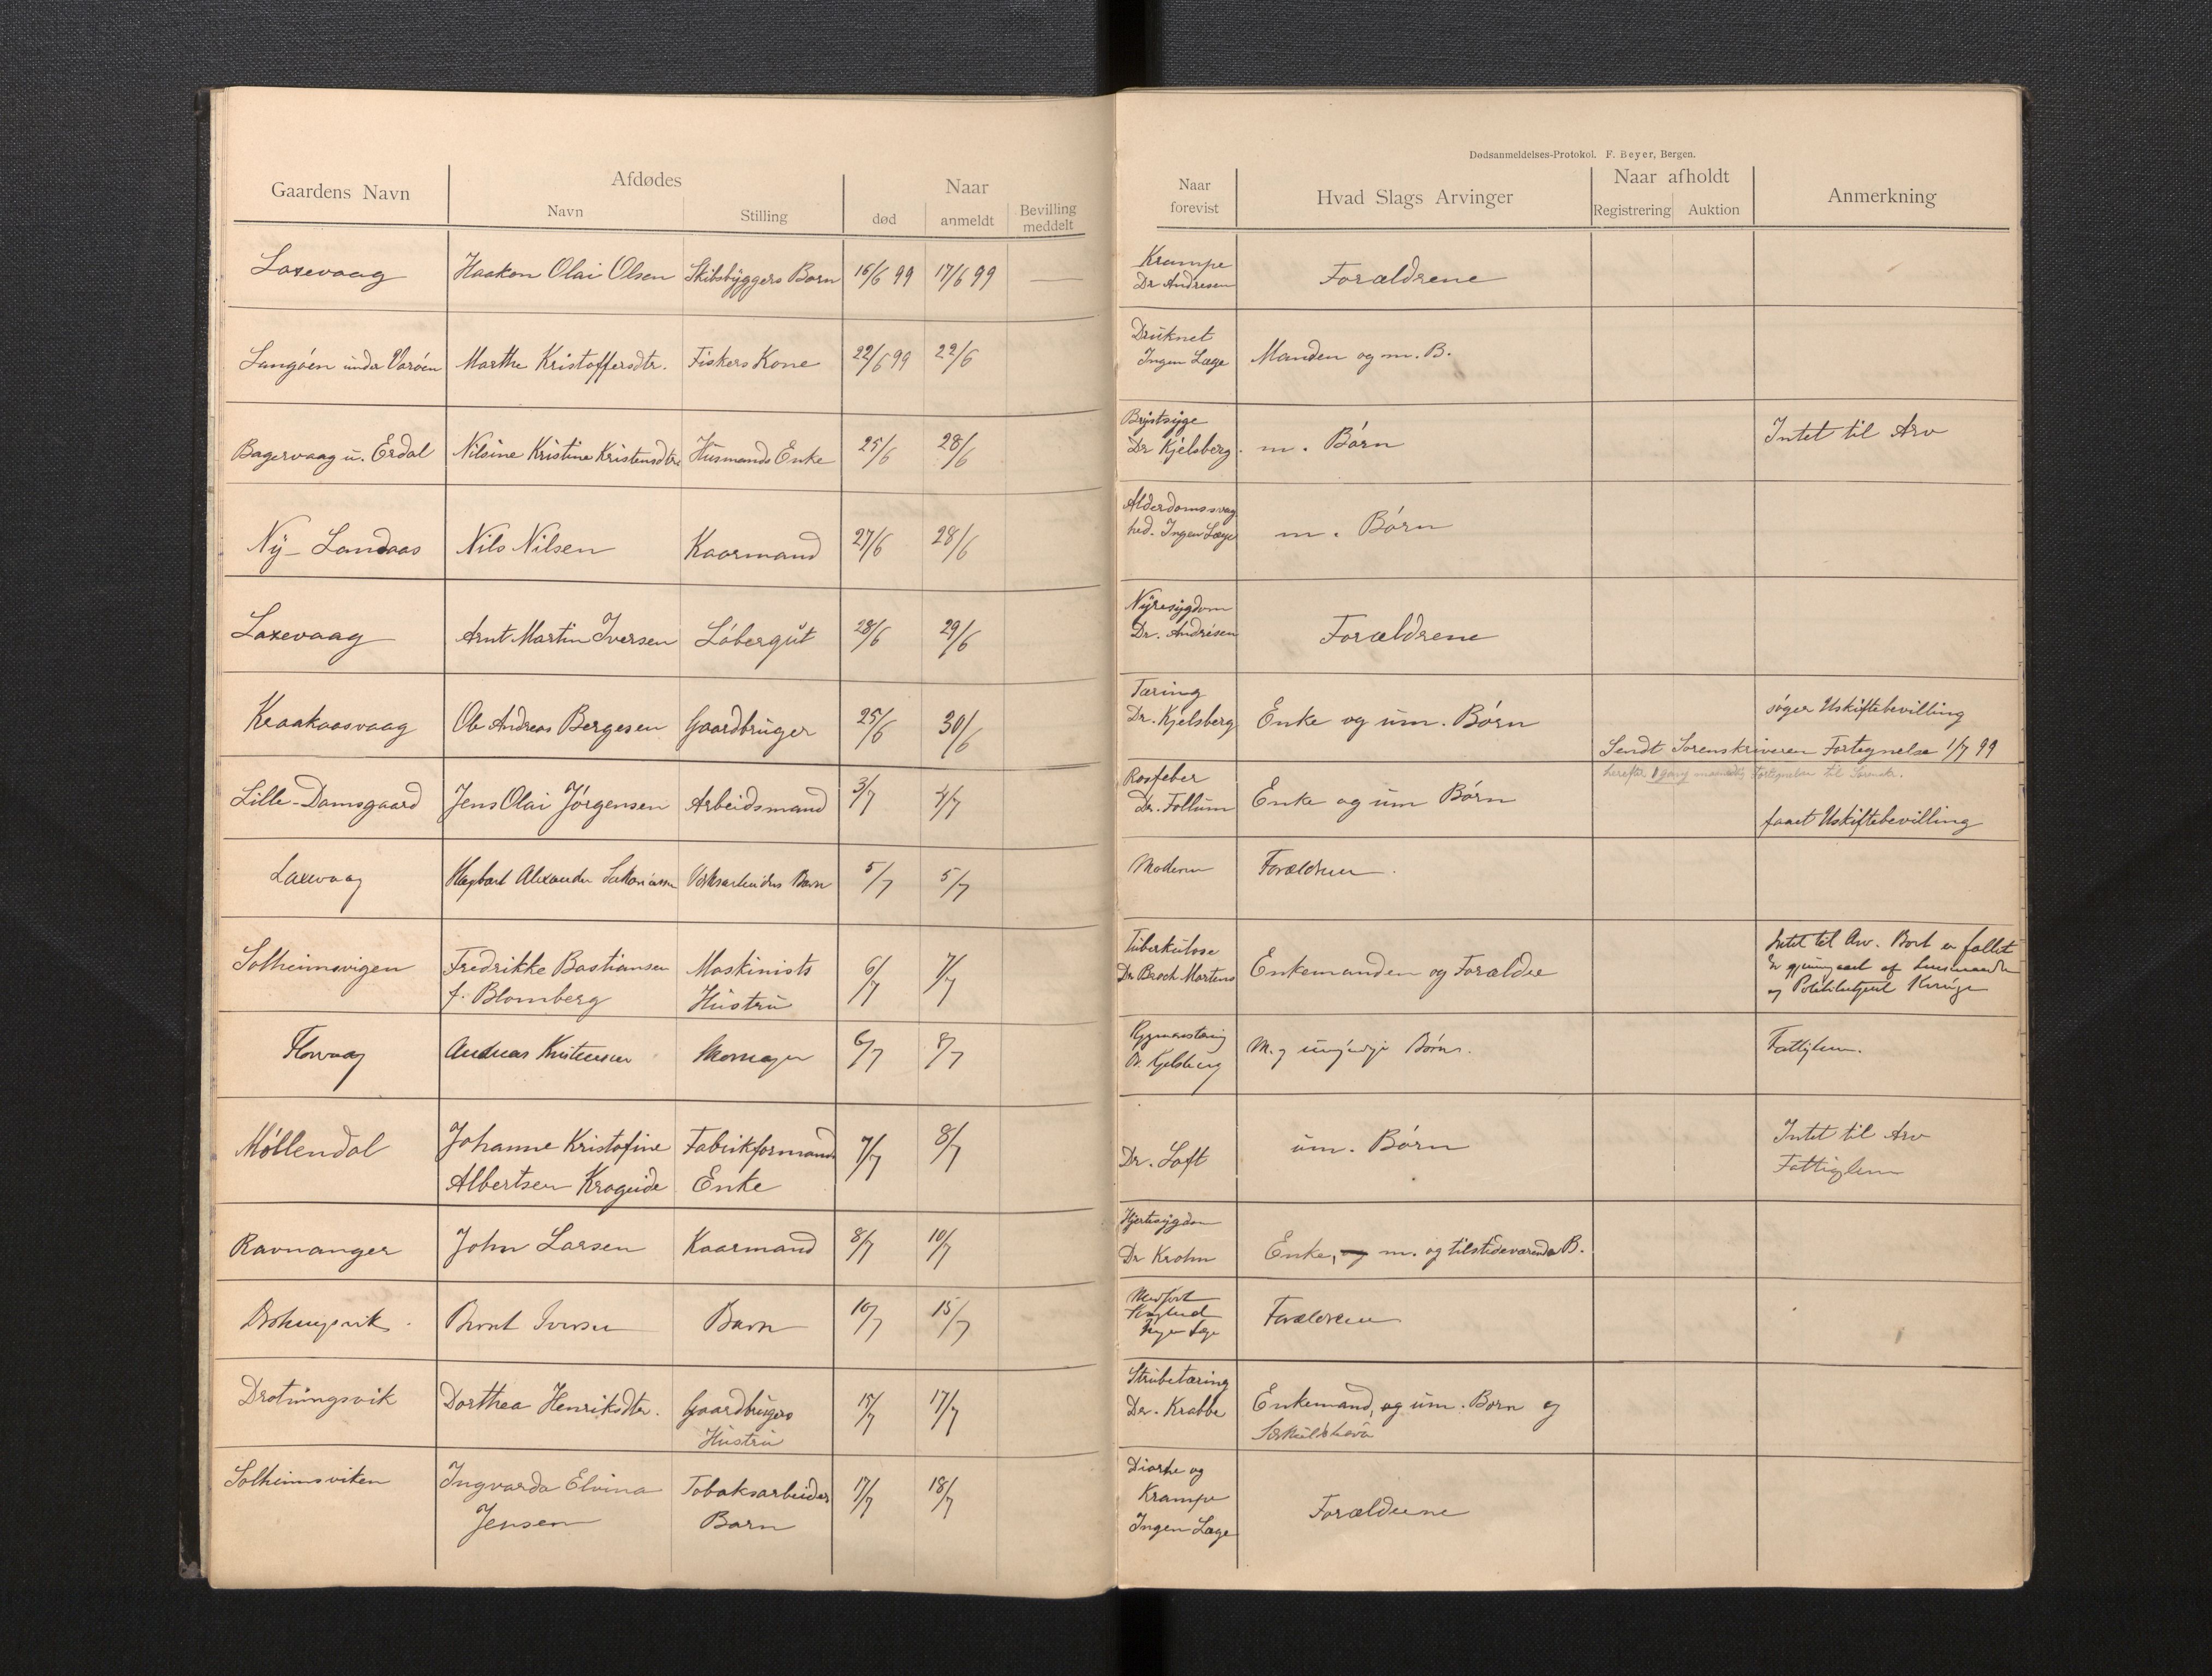 Dødsanmeldelses-Protokol. F. Beyer, Bergen.
Gaardens Navn Afdødes Naar Naar forevist Hvad Slags Arvinger Naar afholdt Anmerkning
Navn Stilling død anmeldt Bevilling meddelt Registrering Auktion
Laxevaag Haakon Olai Olsen Skibsbyggers Barn 16/6 99 17/6 99 — Krampe Forældrene
Dr Andresen
Langøen under Varøen Marthe Kristoffersdtr. Fiskers Kone 22/6 99 22/6 Druknet Manden og m. B.
Ingen Læge
Bagervaag u. Erdal Nilsine Kristine Kristensdtr Husmands Enke 25/6 28/6 Brystsyge m. Børn Intet til Arv
Dr Kjelsberg.
Ny-Landaas Nils Nilsen Kaarmand 27/6 28/6 Alderdomssvag m. Børn
hed. Ingen Læge
Laxevaag Arnt Martin Iversen Løbergut 28/6 29/6 Nyresygdom Forældrene
Dr. Andresen
Kraakaasvaag Ole Andreas Bergesen Gaardbruger 25/6 30/6 Tæring Enke og um. Børn søger Uskiftebevilling
Dr. Kjelsberg
Sendt Sorenskriveren Fortegnelse 1/7 99
herefter 1 gang maanedlig Fortegnelse til
Lille-Damsgaard Jens Olai Jørgensen Arbeidsmand 3/7 4/7 Rosfeber Enke og um Børn faaet Uskiftebevilling
Dr. Follum
Laxevaag Alexander Barn 5/7 5/7 Moderen Forældrene.
Solheimsvigen Fredrikke Bastiansen Maskinists 6/7 7/7 Tuberkulose Enkemanden og Forældre Intet til Arv.
f. Blomberg Hustru Dr Broch Martens
Florvaag Andreas Kristensen Skomager 6/7 8/7 M. og umyndige Børn. Fattiglem.
Dr. Kjelsberg
Møllendal Johanne Kristofine Fabrikformands 7/7 8/7 um. Børn Intet til Arv
Albertsen Krageide Enke Dr. Loft Fattiglem
Ravnanger John Larsen Kaarmand 8/7 10/7 Hjertesygdom Enke, og m. og tilstedeværende B.
Dr Krohn
Drotningsvik. Iversen Barn 10/7 15/7 Medfødt Forældrene
Ingen Læge
Drotningsvik Dorthea Henriksdtr. Gaardbrugers 15/7 17/7 Strubetæring Enkemand, og um. Børn og
Hustru Dr. Krabbe Særkuldsbarn
Solheimsviken Ingvarda Elvina Tobaksarbeider 17/7 18/7 Diarhe og Forældrene
Jensen Barn Krampe
Ingen Læge